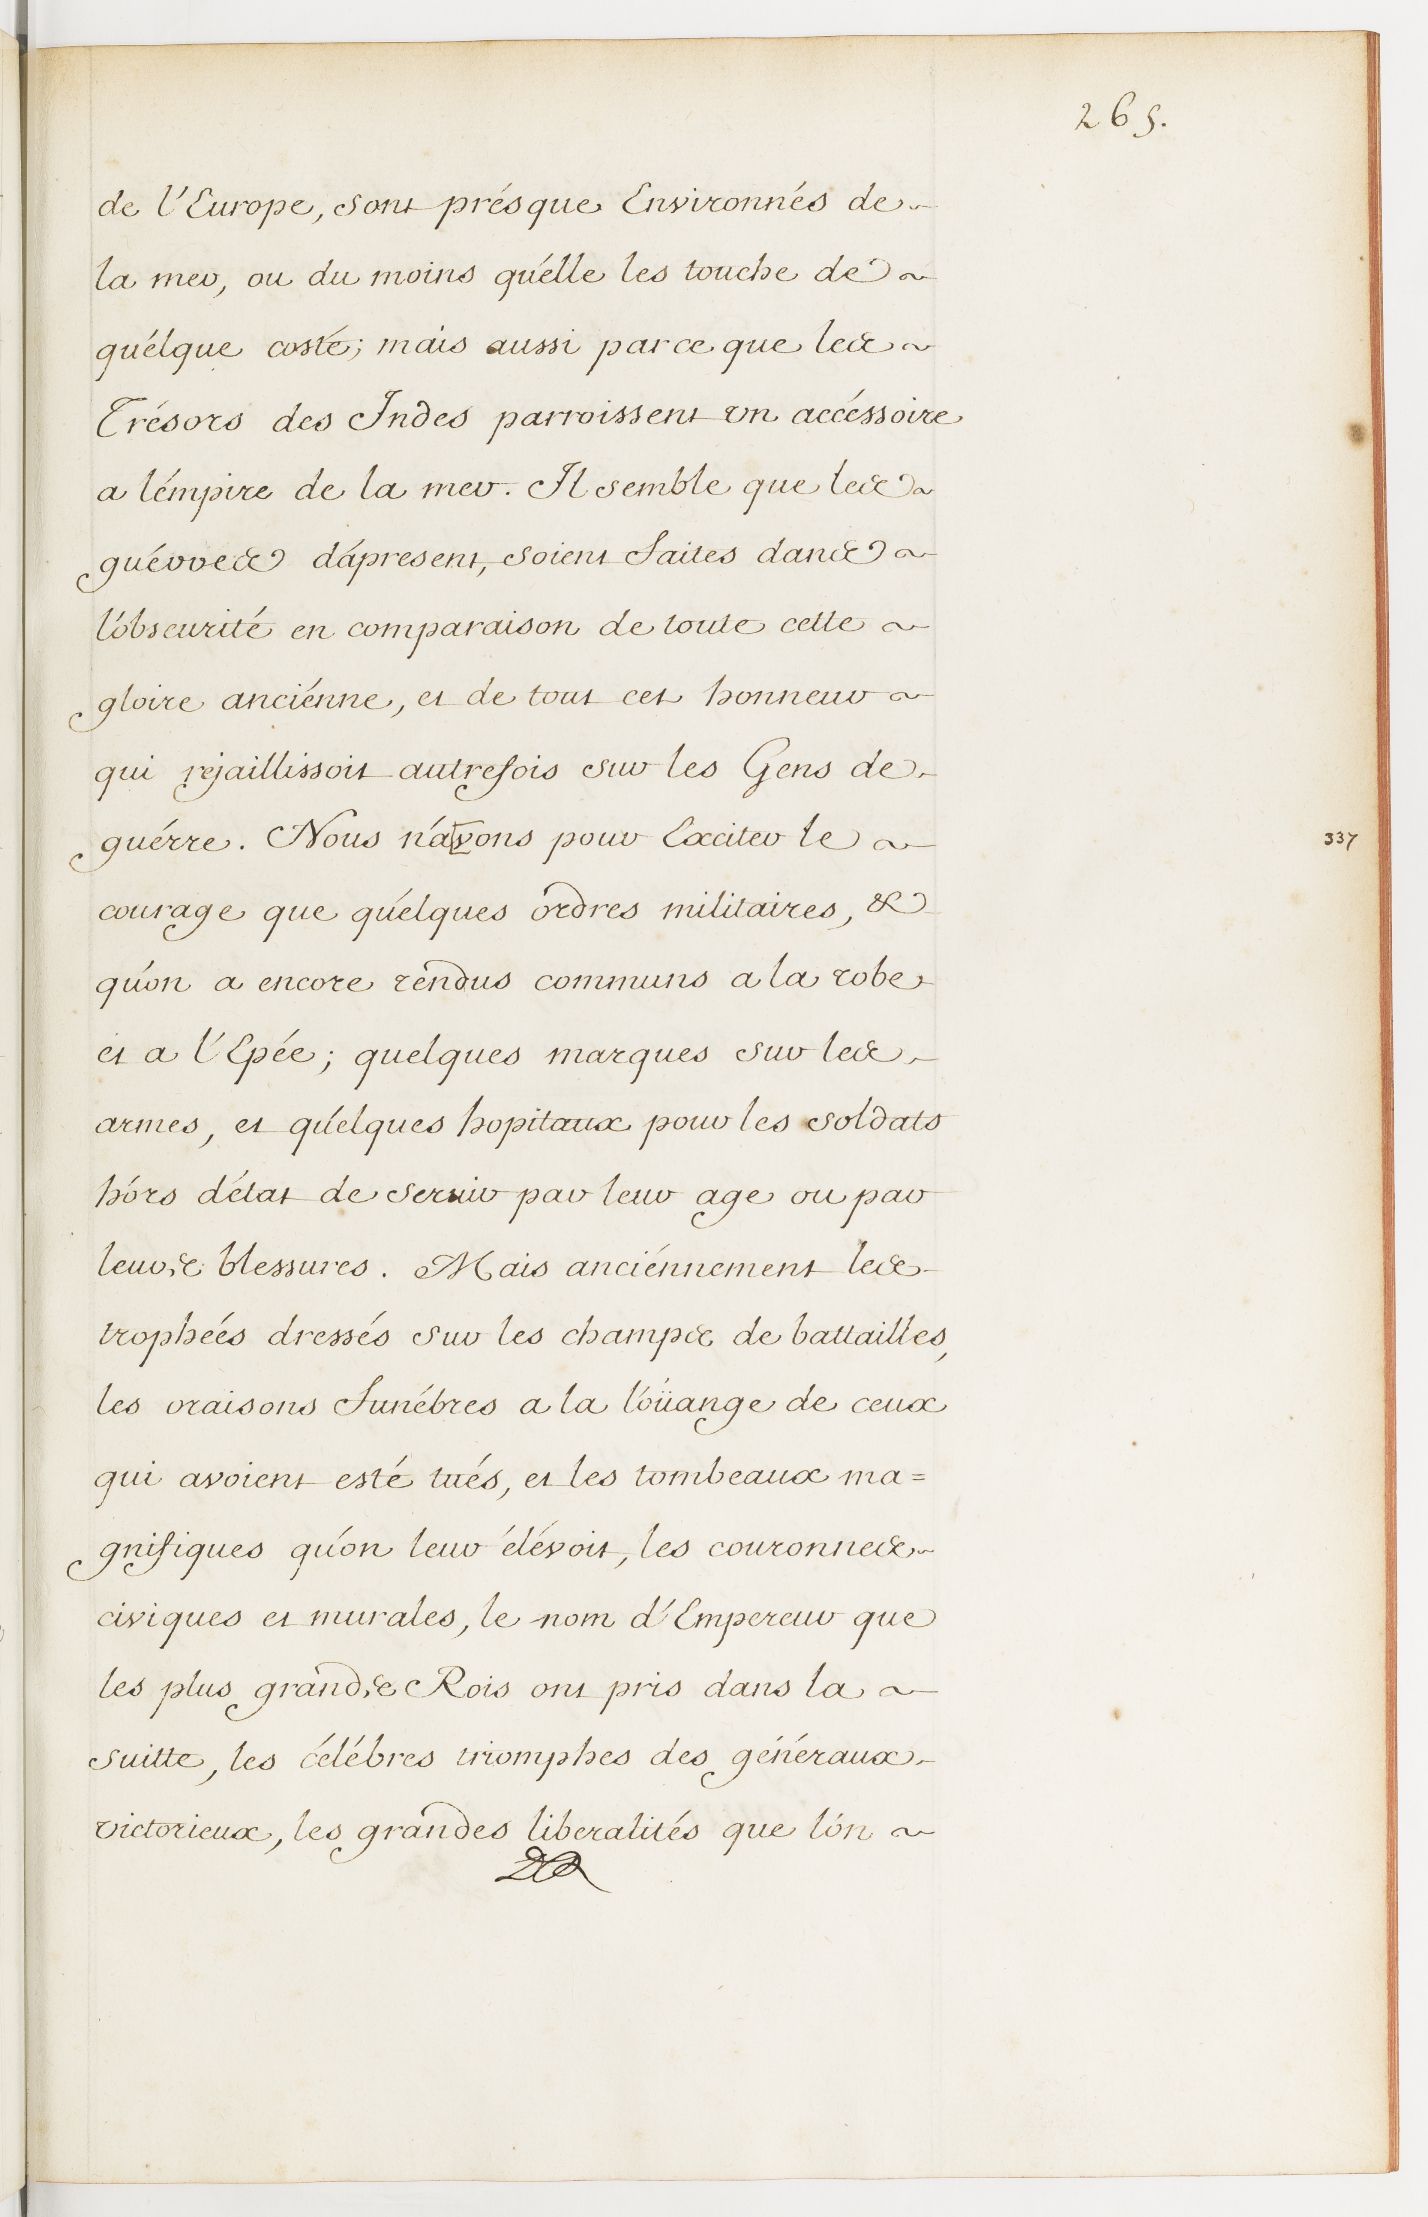 265.
de l'Europe, sont présque Environnés de
la mer, ou du moins qu'élle les touche de
quélque costé; mais aussi parce que les
Trésors des Indes parroissent vn accéssoire
a l'émpire de la mer. Il semble que les
guérres d'apresent, soient faites dans
l'obscurité en comparaison de toute cette
gloire anciénne, et de tout cet honneur
qui rejaillissoit autrefois sur les Gens de
guérre. Nous n'avons pour Exciter le
courage que quélques ordres militaires, &
qu'on a encore rendus communs a la robe
et a l'Epée; quelques marques sur les
armes, et quélques hopitaux pour les soldats
hórs d'état de seruir par leur age ou par
leurs blessures. Mais anciénnement les
trophées dressés sur les champs de battailles,
les oraisons funébres a la loüange de ceux
qui avoient esté tués, et les tombeaux ma=
gnifiques qu'on leur élévoit, les couronnes
civiques et murales, le nom d'Empereur que
les plus grands Rois ont pris dans la
suitte, les célébres triomphes des généraux
victorieux, les grandes liberalités que l'on
337